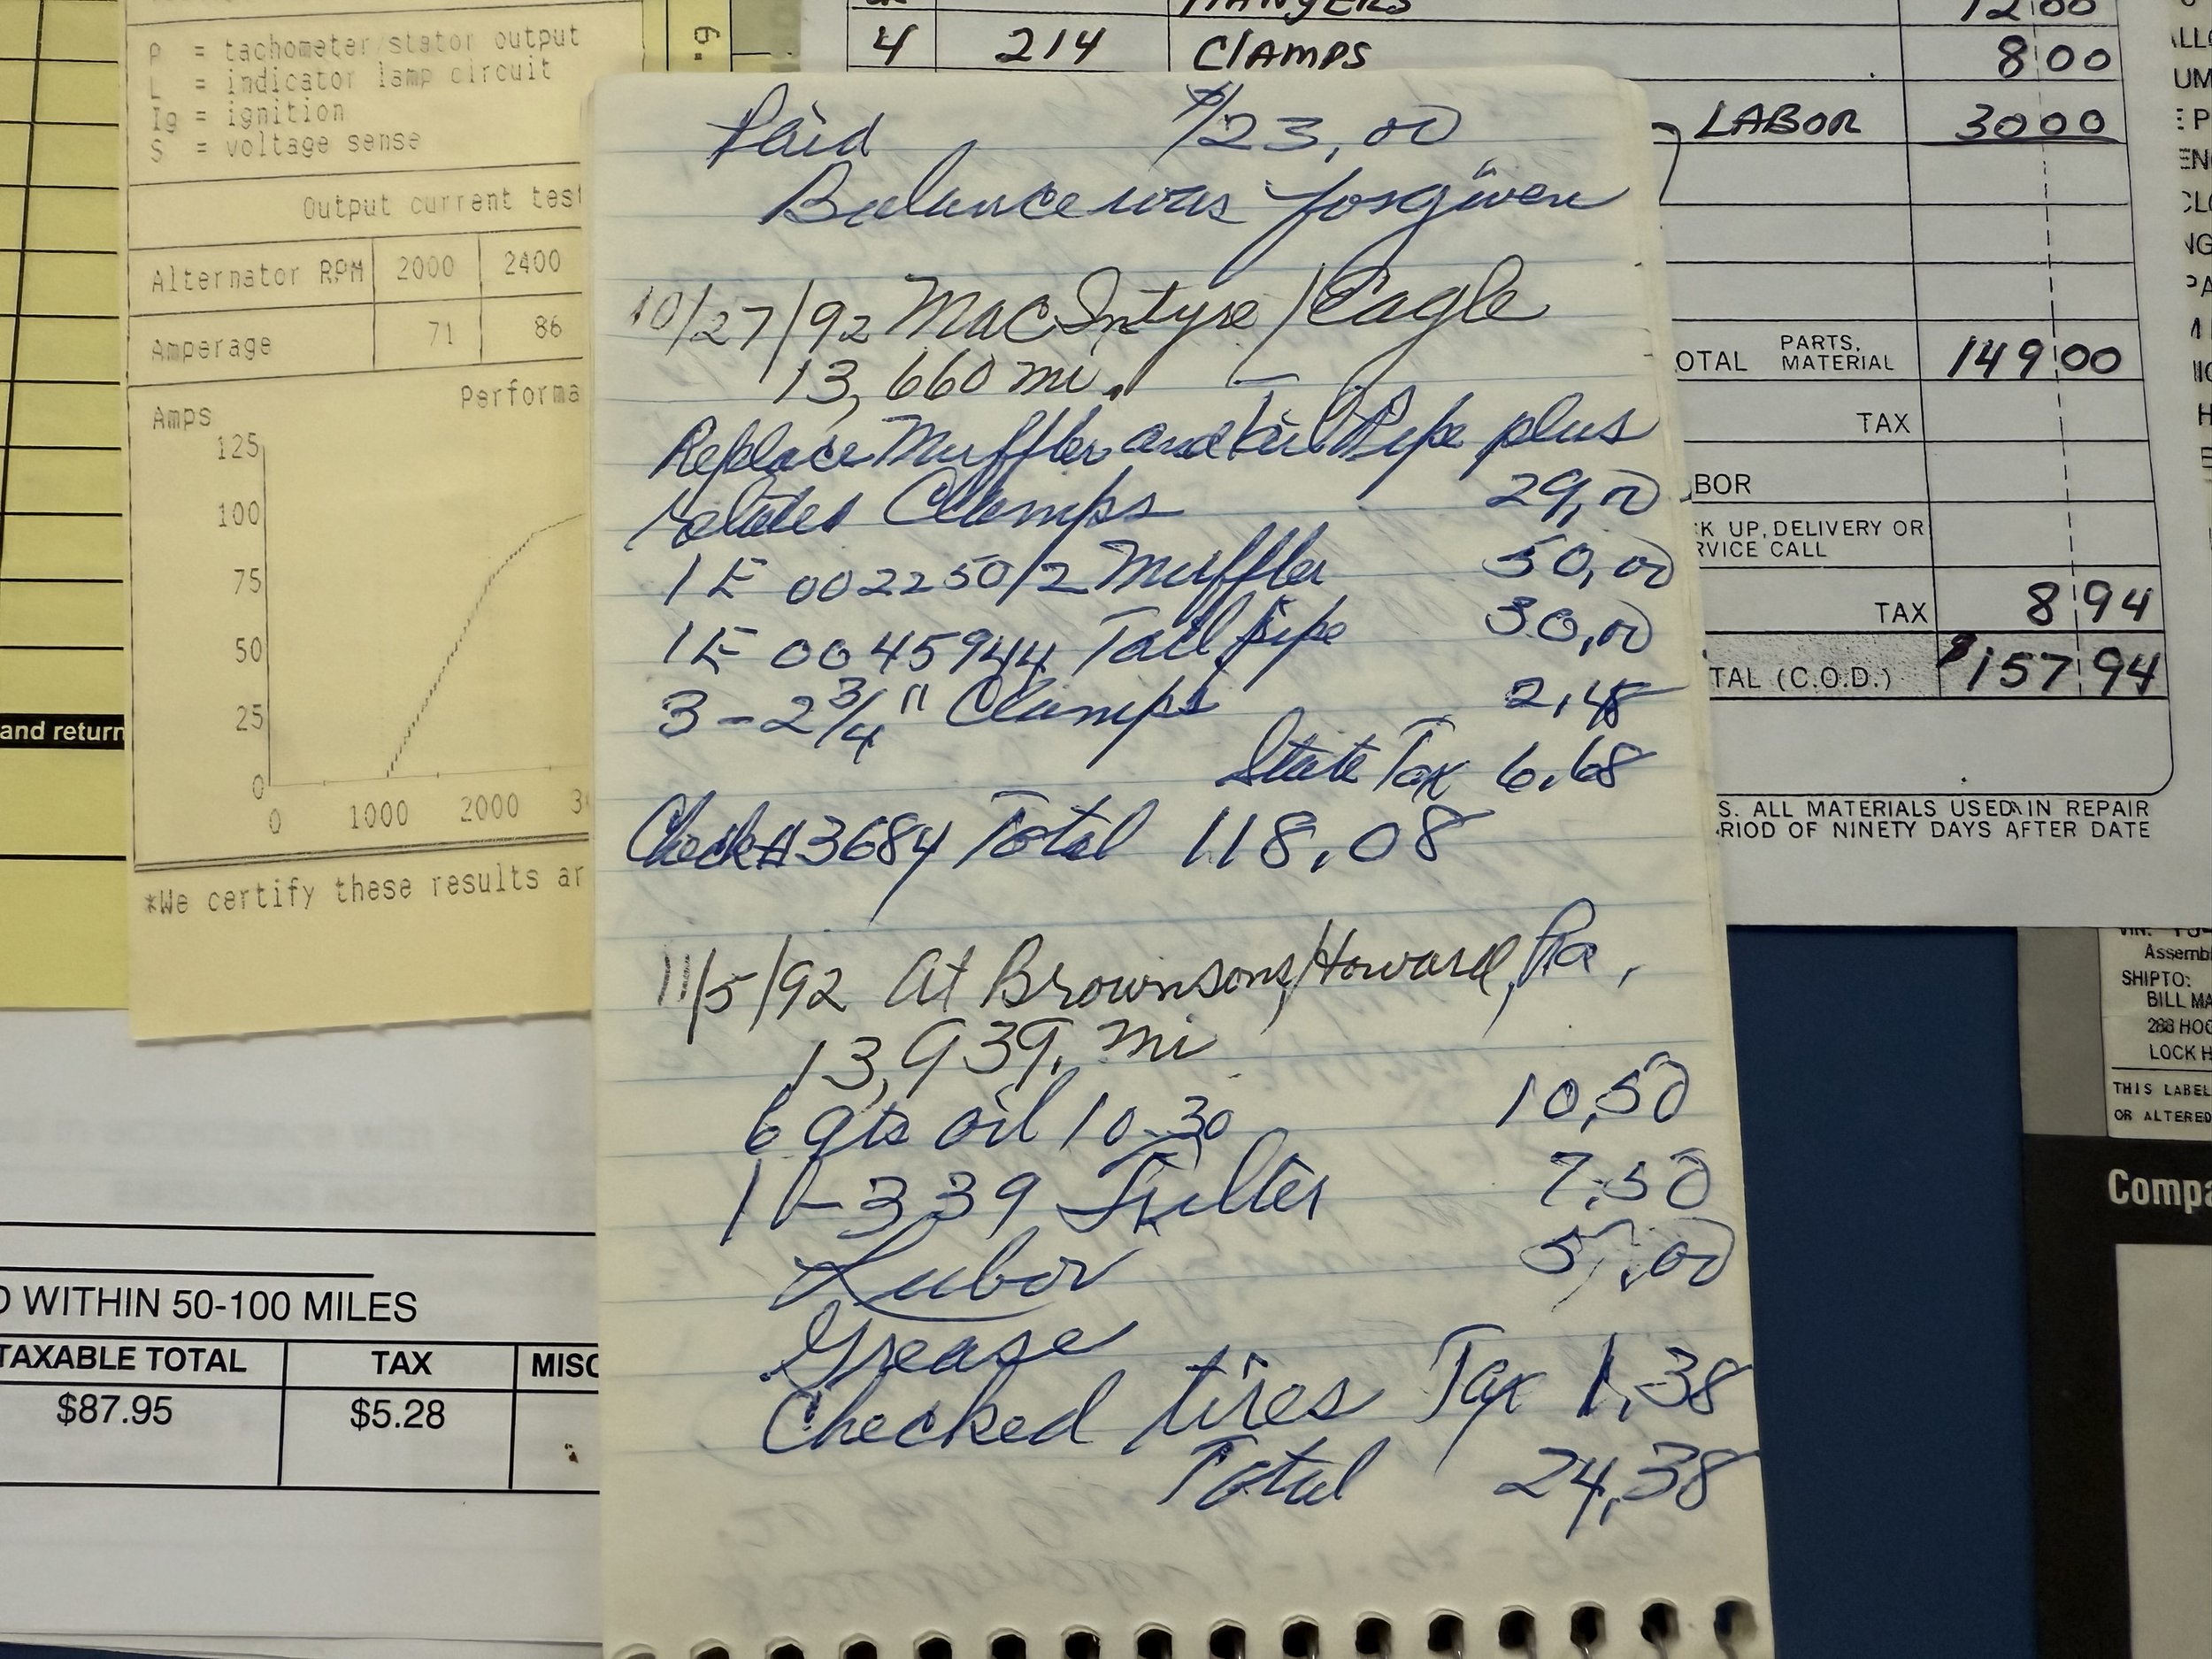 P = tachometer/stator output
L = indicator lamp circuit
Ig = ignition
S = voltage sense
Output current test
Alternator RPM 2000 2400
Amperage 71 86
Performa
Amps
125
100
75
50
25
0
0 1000 2000
*We certify these results ar
and return
D WITHIN 50-100 MILES
TAXABLE TOTAL TAX MISC
$87.95 $5.28
Paid $123,00
Balance was forgiven
10/27/92 MacIntyre/Eagle
13,660 mi.
Replace Muffler and tail Pipe plus
related Clamps 29,00
1 E 00225012 Muffler 50,00
1 E 0045944 Tail pipe 30,00
3-2 3/4" Clamps 2,48
State Tax 6.68
Check#3684 Total 118,08
11/5/92 At Brownsons/Howard, Pa,
13,939. mi
6 qts oil 10-30 10,50
339 Filter 7.50
Labor 5,00
Grease
Checked tires Tax 1,38
Total 24,38
HANGERS 12 00
4 214 ClAMPS 8 00
LABOR 30 00
OTAL PARTS, MATERIAL 149 00
TAX
BOR
K UP, DELIVERY OR
RVICE CALL
TAX 8 94
TAL (C.O.D.) $157 94
S. ALL MATERIALS USED IN REPAIR
RIOD OF NINETY DAYS AFTER DATE
VIN:
Assembl
SHIPTO:
BILL MA
288 HOG
LOCK H
THIS LABEL
OR ALTERED
Compa